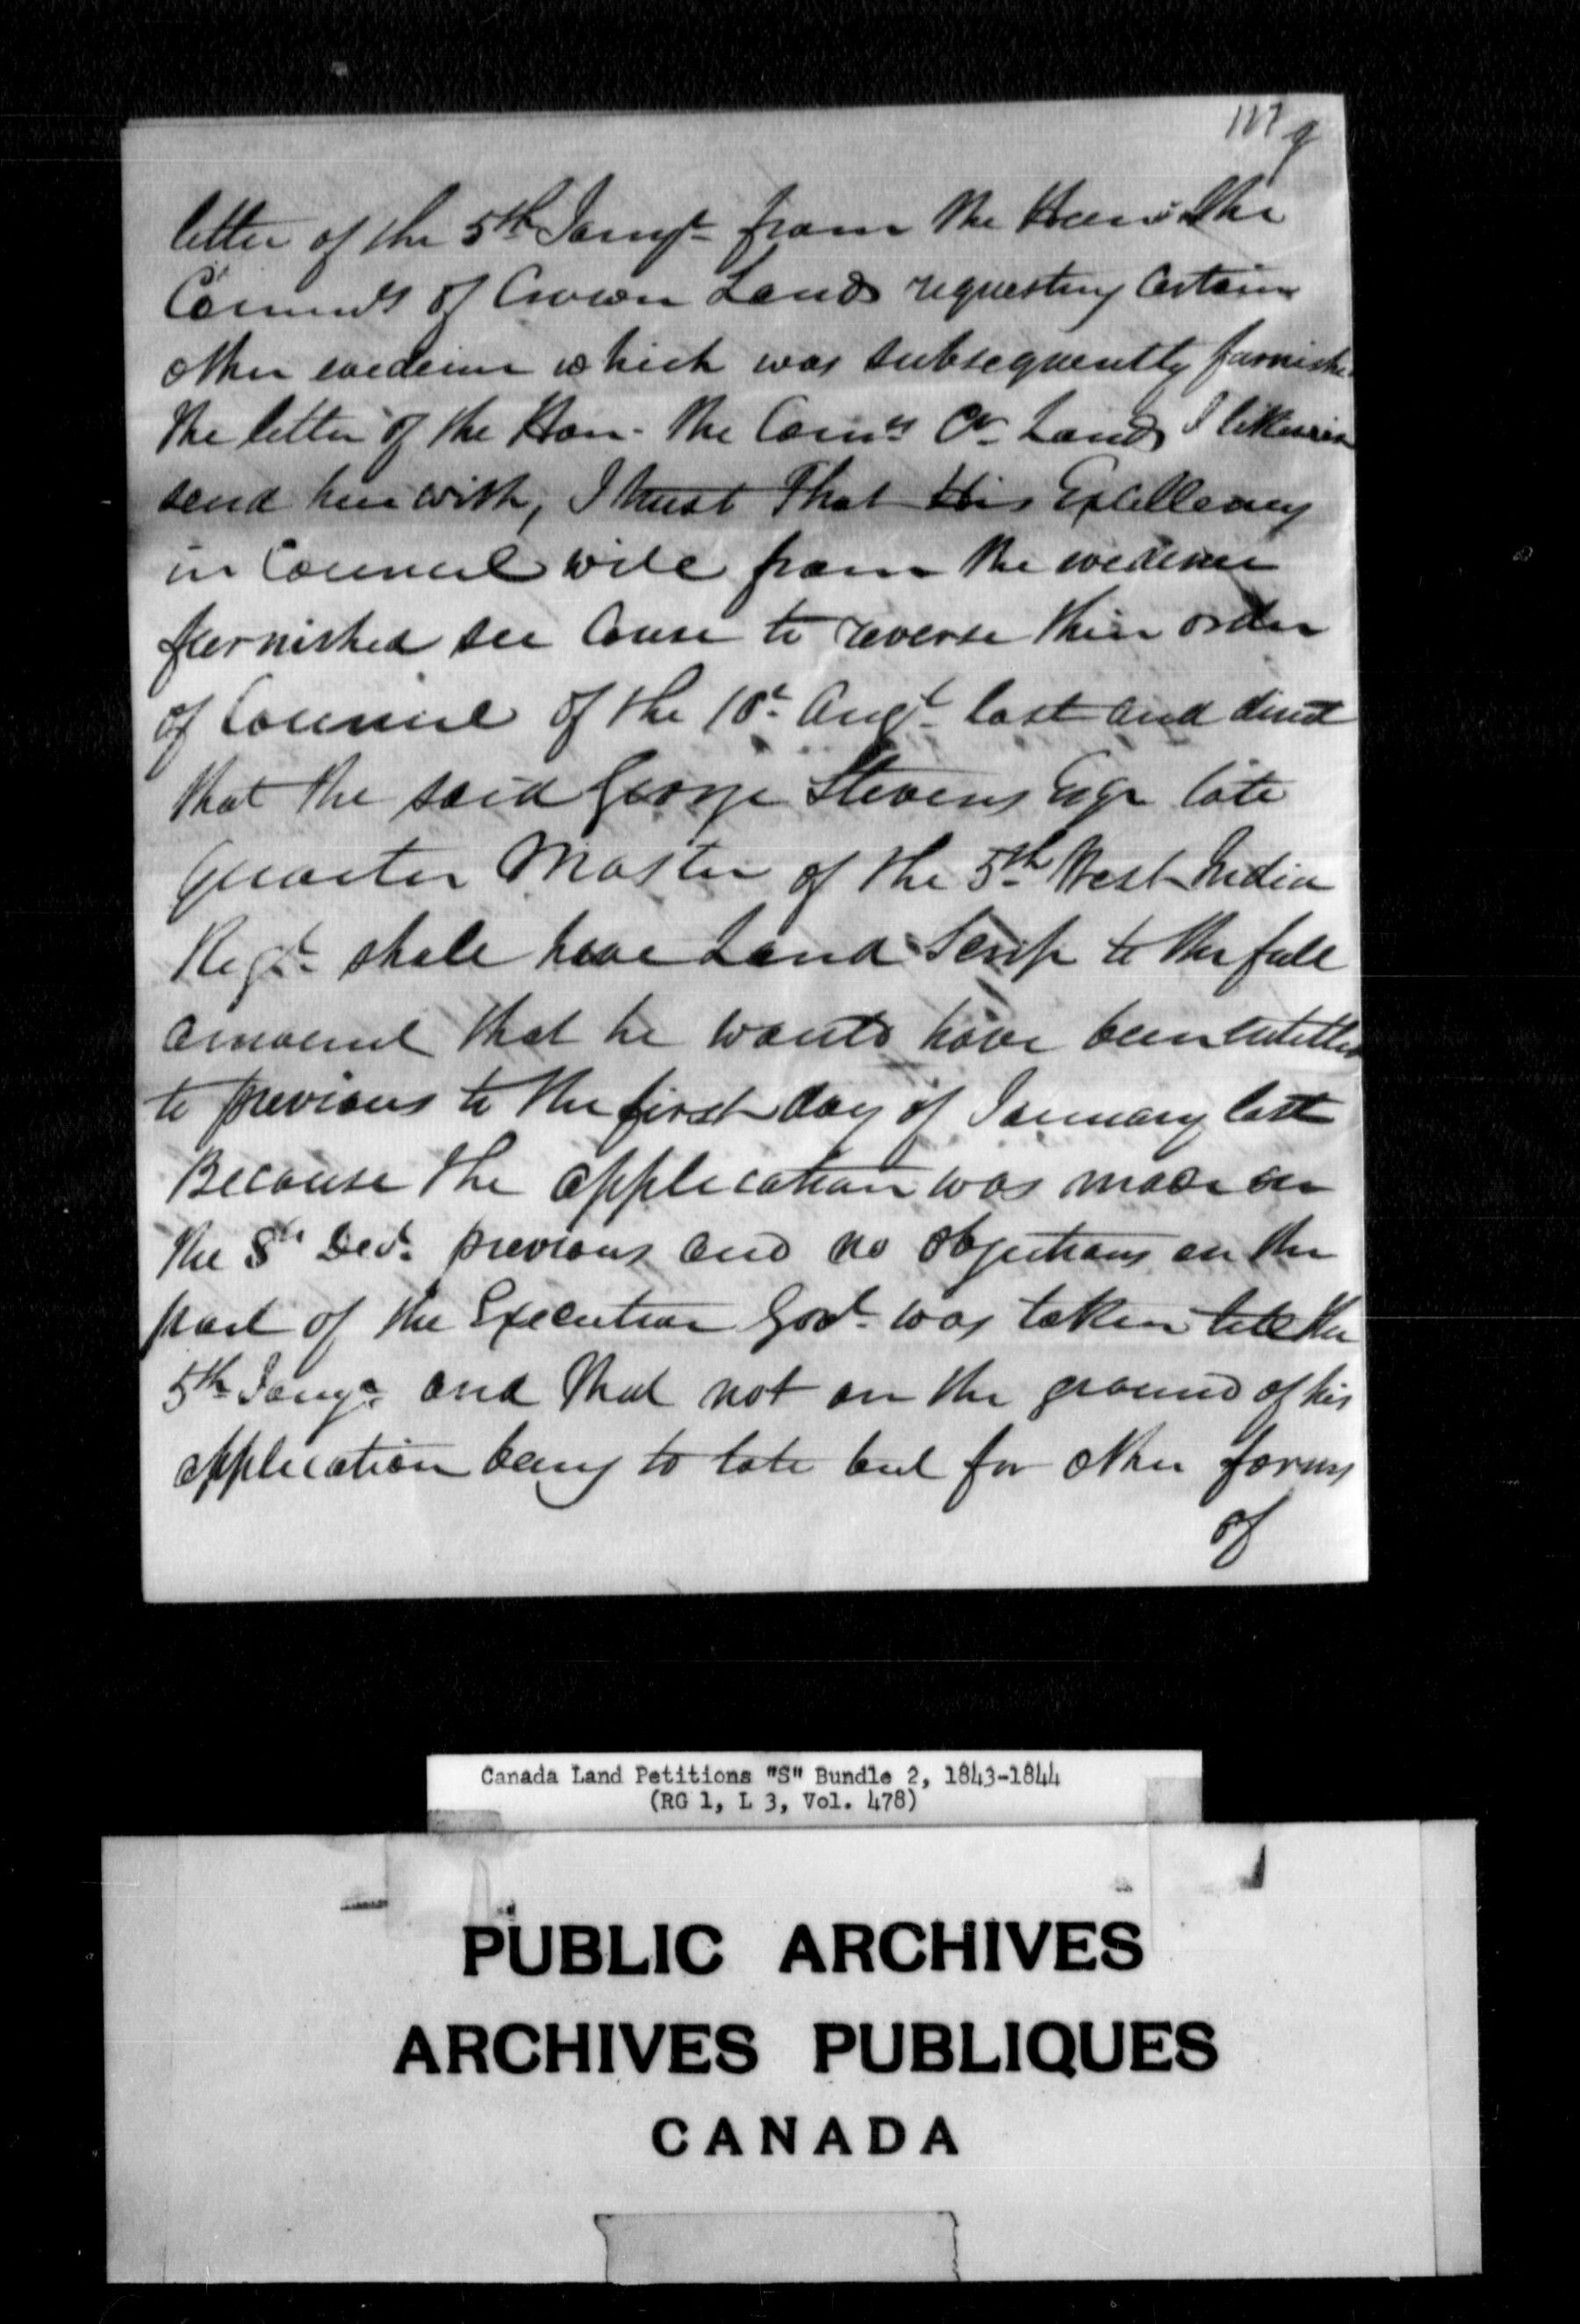 117 g
letter of the 5th Jany from the Hon. the
Commr of Crown Lands requesting Certain
other evidence which was subsequently furnished
the letter of the Hon. the Comr Cr Lands I likewise
send herewith, I trust That His Excellency
in Council will from the evidence
furnished see Cause to reverse their order
of Council of the 10th Augt last and direct
that the said George Stevens Esqr late
Quarter Master of the 5th West India
Regt shall have Land Scrip to the full
amount that he would have been entitled
to previous to the first day of January last
Because the application was made on
the 8th Decr previous and no objections on the
part of the Executive Govt was taken till the
5th Jany and that not on the ground of his
application being to late but for other forms
of
Canada Land Petitions "S" Bundle 2, 1843-1844
(RG 1, L 3, Vol. 478)
PUBLIC ARCHIVES
ARCHIVES PUBLIQUES
CANADA